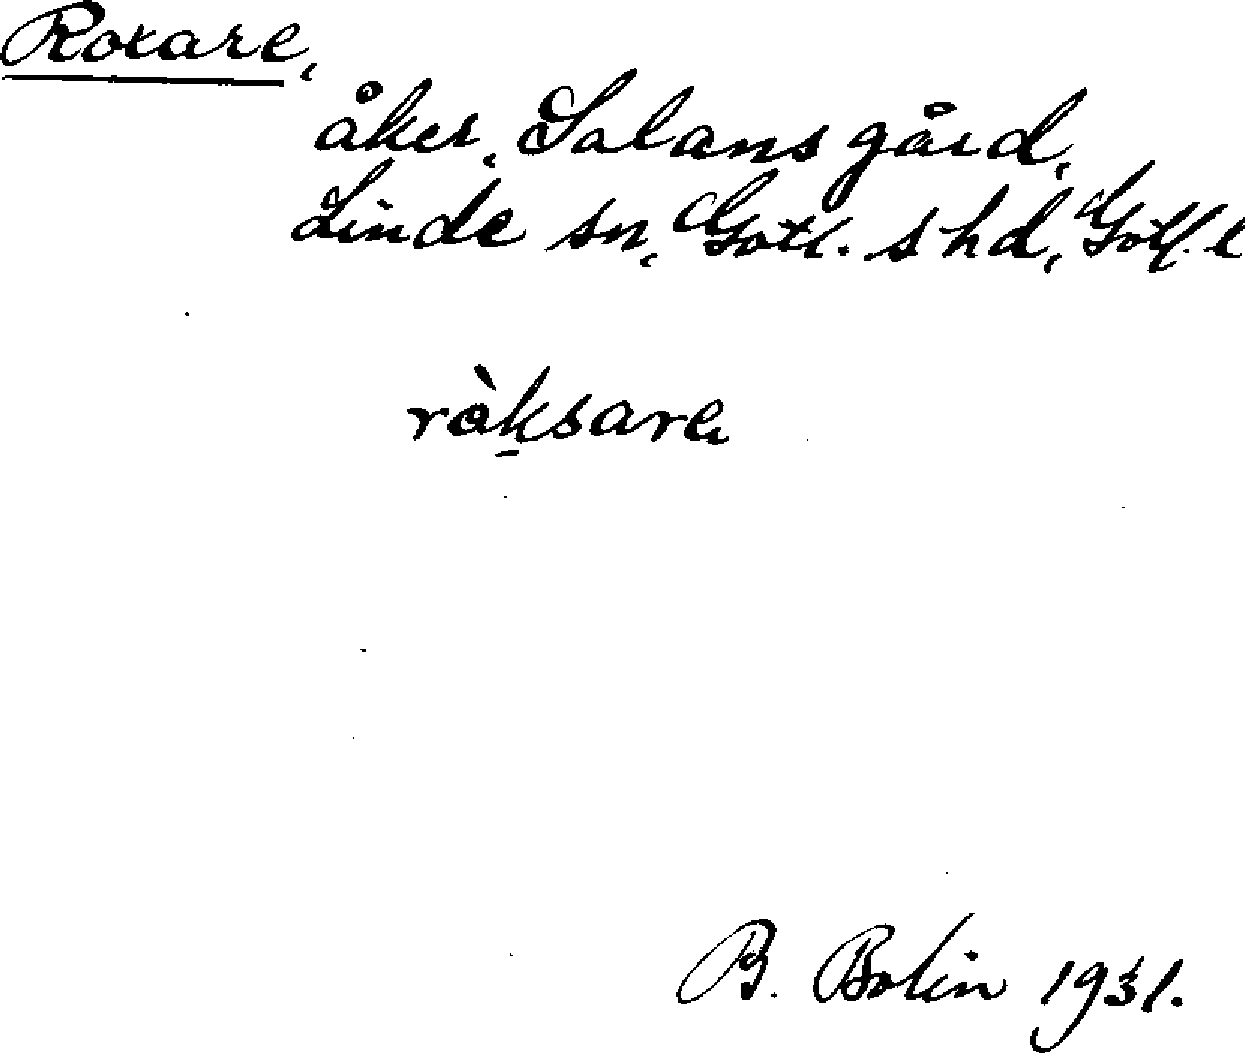 Roxare,
åker, Salans gård,
Linde sn, Gotl. s hd, Gotl. l
ràksare
B. Bolin 1931.